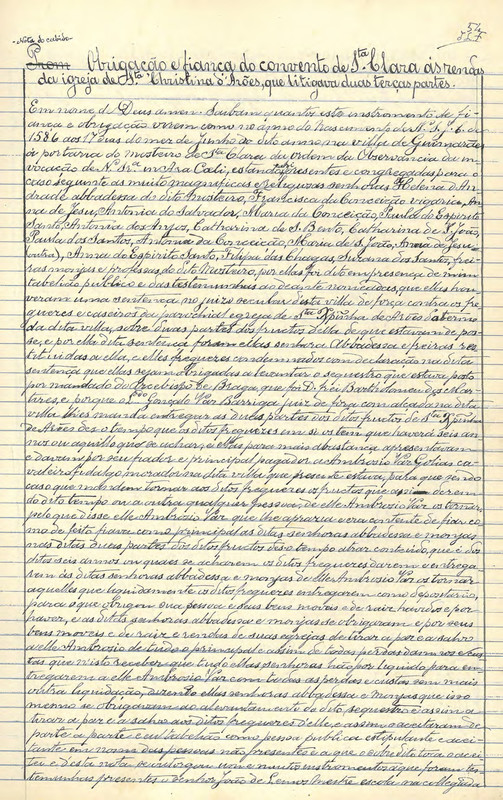 Nota do cabido
Obrigação e fiança do convento de Sta. Clara ás rendas
da igreja de Sta. Christina d'Arões, que litigava duas terças partes.
Em nome de Deus amen. Saibam quantos este instrumento de fi-
ança e obrigação virem como no anno do Nascimento de N. S. J. C. de
1586 aos 17 dias do mez de junho do dito anno na villa de Guimarães
á portaria do mosteiro de Sta. Clara da ordem da Observancia da in-
vocação de N. Sra. in Ara Celi, estando presentes e congregadas para o
caso seguinte as muito magnificas e religiosas senhoras Helena d'An-
drade abbadessa do dito mosteiro, Francisca da Conceição vigaria, An-
na de Jesu, Antonia do Salvador, Maria da Conceição, Paula do Espirito
Santo, Antonia dos Anjos, Catharina de S. Bento, Catharina de S. João,
Paula dos Santos, Antonia da Conceição, Maria de S. João, Anna de Jesu
(outra), Anna do Espirito Santo, Filipa das Chagas, Suzana dos Santos, frei-
ras monjas e professas do dito mosteiro, por ellas foi dito em presença de mim
tabelião publico e das testemunhas ao deante nomeadas, que ellas hou-
veram uma sentença no juizo secular desta villa de força contra os fre-
guezes e caseiros da parochial egreja de Sta. Xpinha de Arões do termo
da dita villa, sobre duas partes dos fructos della de que estavam de pos-
se, e por ella dita sentença foram ellas senhoras Abbadessa e freiras res-
tituidas a ella, e elles freguezes condemnados com declaração na dita
sentença que ellas sejam obrigadas a levantar o sequestro que estava posto
por mandado do Arcebispo de Braga, que foi D. frei Bartholomeu dos Mar-
tires, e porque o Gonçalo Vaz Barriga juiz de força comarcada na dita
villa lhes manda entregar as duas partes dos ditos fructos de Sta. Xpinha
de Arões des o tempo que os ditos freguezes em si os tem que haverá seis an-
nos ou aquillo que se achar, e ellas para mais abastança apresentavam
e davam por seu fiador e principal pagador a Ambrosio Vaz Golias ca-
valeiro fidalgo morador na dita villa que presente estava, para que sendo
caso que mandem tornar aos ditos freguezes os fructos que assi derem
do dito tempo ou a outra qualquer pessoa, de elle Ambrosio Vaz os tornar,
pelo que disse elle Ambrosio Vaz que lhe aprazia e era contente de fiar co-
mo de feito fiava como principal as ditas senhoras abbadessa e monjas
nas ditas duas partes dos ditos fructos desso tempo atraz contendo, que é dos
ditos seis annos ou quaes se acharem os ditos freguezes darem e entrega-
rem ás ditas senhoras abbadessa e monjas de elle Ambrosio Vaz os tornar
aquelles que liquidamente os ditos freguezes entregarem como depositario,
para o que obrigou sua pessoa e seus bens moveis e de raiz havidos e por
haver, e as ditas senhoras abbadessa e monjas se obrigaram e por seus
bens moveis e de raiz e rendas de suas egrejas de tirar a paz e a salvo
a elle Ambrosio de tudo o principal e assim de todas perdas damnos e cus-
tas que n'isto receber que tudo ellas senhoras hão por liquido para en-
tregarem a elle Ambrosio Vaz com todas as perdas e custas sem mais
outra liquidação, dizendo ellas senhoras abbadessa e monjas que isso
mesmo se obrigavam ao alevantamento do dito sequestro e assim a
tirar a paz e a salvo aos ditos freguezes d'elle, e assim o aceitaram de
parte a parte e eu tabelião como pessoa publica estipulante e acei-
tante em nome das pessoas não presentes a que o sobredito toca o acei-
tei e desta nota outorgou um e muitos instrumentos a que foram tes-
temunhas presentes o senhor João de Lemos mestre escola na collegiada